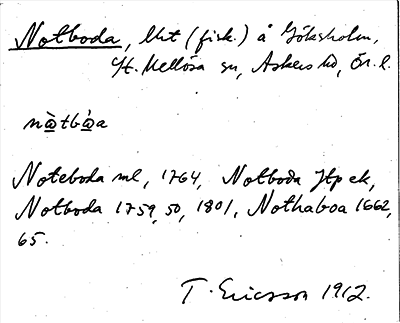 Notboda, lht (fisk.) å Göksholm,
St. Mellösa sn, Askers hd, Ör. l.
nòtbòa
Noteboda ml, 1764, Notboda Jtp ek,
Notboda 1759, 50, 1801, Nothaboa 1662,
65.
T. Ericsson 1912.